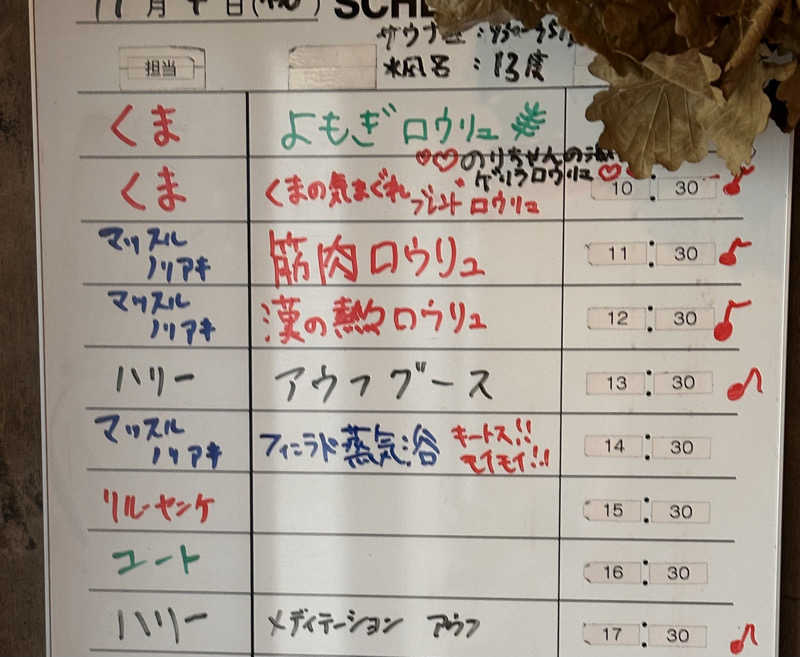 月 日
SCHE
サウナ室
水風呂 : 13度
担当
くま よもぎロウリュ
のりちゃんの
ゲリラロウリュ
くま くまの気まぐれ ブレンド ロウリュ 10 : 30
マッスル ノリアキ 筋肉ロウリュ 11 : 30
マッスル ノリアキ 漢の熱々ロウリュ 12 : 30
ハリー アウフグース 13 : 30
マッスル ノリアキ フィンランド蒸気浴 キートス!! モイモイ!! 14 : 30
リルーヤンケ 15 : 30
コート 16 : 30
ハリー メディテーション アウフ 17 : 30